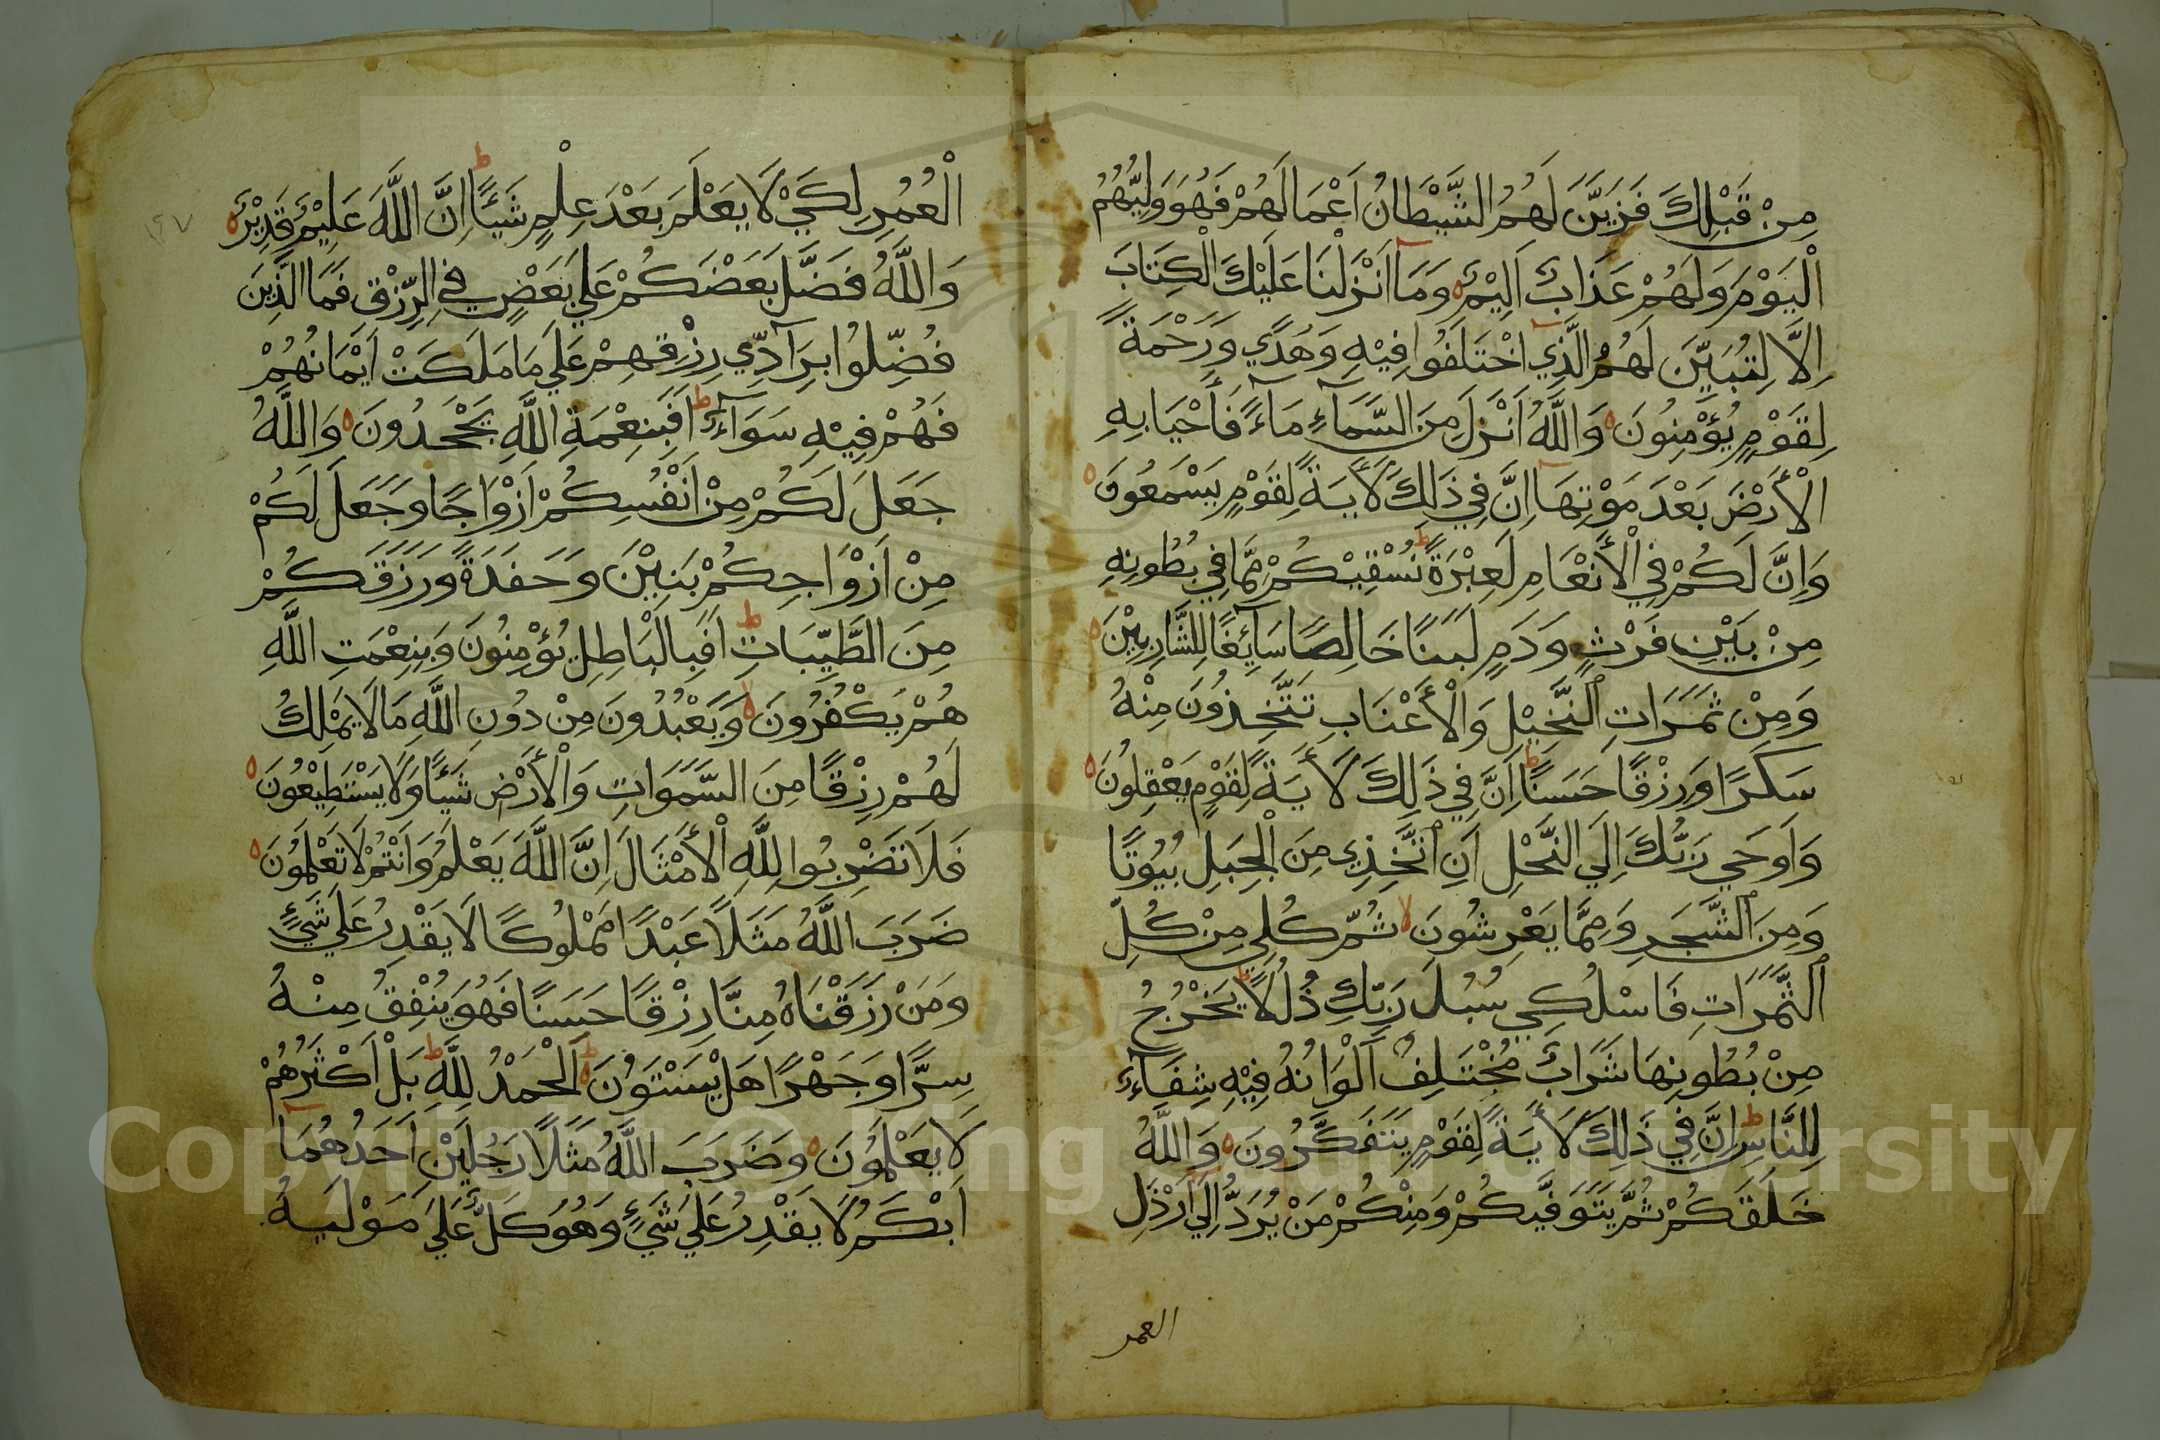 مِنْ قَبْلِكَ فَزَيَّنَ لَهُمُ الشَّيْطَانُ اَعْمَالَهُمْ فَهُوَ وَلِيُّهُمُ
الْيَوْمَ وَلَهُمْ عَذَابٌ اَلِيْمٌ ه وَمَآ اَنْزَلْنَا عَلَيْكَ الْكِتَابَ
اِلَّا لِتُبَيِّنَ لَهُمُ الَّذِي اخْتَلَفُوا فِيْهِ وَهُدًي وَرَحْمَةً
لِقَوْمٍ يُؤْمِنُونَ ه وَاللَّهُ اَنْزَلَ مِنَ السَّمَآءِ مَآءً فَأَحْيَا بِهِ
الْأَرْضَ بَعْدَ مَوْتِهَآ اِنَّ فِي ذَلِكَ لَأَيَةً لِقَوْمٍ يَسْمَعُونَ ه
وَاِنَّ لَكُمْ فِي الْأَنْعَامِ لَعِبْرَةً ط نُسْقِيْكُمْ مِمَّا فِي بُطُونِهِ
مِنْ بَيْنِ فَرْثٍ وَدَمٍ لَبَنًا خَالِصًا سَآئِغًا لِلشَّارِبِيْنَ ه
وَمِنْ ثَمَرَاتِ النَّخِيْلِ وَالْأَعْنَابِ تَتَّخِذُونَ مِنْهُ
سَكَرًا وَرِزْقًا حَسَنًا ط اِنَّ فِي ذَلِكَ لَأَيَةً لِقَوْمٍ يَعْقِلُونَ ه
وَاَوحَي رَبُّكَ اِلَي النَّحْلِ اَنِ اتَّخِذِي مِنَ الْجِبَلِ بُيُوتًا
وَمِنَ الشَّجَرِ وَمِمَّا يَعْرِشُونَ لا ثُمَّ كُلِي مِنْ كُلِّ
الثَّمَرَاتِ فَاسْلُكِي سُبُلَ رَبِّكِ ذُلُلًا ط يَخْرُجُ
مِنْ بُطُونِهَا شَرَابٌ مُخْتَلِفٌ اَلْوَانُهُ فِيْهِ شِفَآءٌ
لِلنَّاسِ ط اِنَّ فِي ذَلِكَ لَأَيَةً لِقَوْمٍ يَتَفَكَّرُونَ ه وَاللَّهُ
خَلَقَكُمْ ثُمَّ يَتَوَفَّيكُمْ وَمِنْكُمْ مَنْ يُرَدُّ اِلَي اَرْذَلِ
العمر
الْعُمُرِ لِكَيْ لَا يَعْلَمَ بَعْدَ عِلْمٍ شَيْئًا ط اِنَّ اللَّهَ عَلِيْمٌ قَدِيْرٌ ه
وَاللَّهُ فَضَّلَ بَعْضَكُمْ عَلَي بَعْضٍ فِي الرِّزْقِ فَمَا الَّذِينَ
فُضِّلُوا بِرَآدِّي رِزْقِهِمْ عَلَي مَا مَلَكَتْ اَيْمَانُهُمْ
فَهُمْ فِيْهِ سَوَآءٌ ط اَفَبِنِعْمَةِ اللَّهِ يَجْحَدُونَ ه وَاللَّهُ
جَعَلَ لَكُمْ مِنْ اَنْفُسِكُمْ اَزْوَاجًا وَجَعَلَ لَكُمْ
مِنْ اَزْوَاجِكُمْ بَنِيْنَ وَحَفَدَةً وَرَزَقَكُمْ
مِنَ الطَّيِّبَاتِ ط اَفَبِالْبَاطِلِ يُؤْمِنُونَ وَبِنِعْمَتِ اللَّهِ
هُمْ يَكْفُرُونَ لا وَيَعْبُدُونَ مِنْ دُونِ اللَّهِ مَا لَا يَمْلِكُ
لَهُمْ رِزْقًا مِنَ السَّمَوَاتِ وَالْأَرْضِ شَيْئًا وَلَا يَسْتَطِيْعُونَ ه
فَلَا تَضْرِبُوا لِلَّهِ الْأَمْثَالَ اِنَّ اللَّهَ يَعْلَمُ وَاَنْتُمْ لَا تَعْلَمُونَ ه
ضَرَبَ اللَّهُ مَثَلًا عَبْدًا مَمْلُوكًا لَا يَقْدِرُ عَلَي شَيْءٍ
وَمَنْ رَزَقْنَاهُ مِنَّا رِزْقًا حَسَنًا فَهُوَ يُنْفِقُ مِنْهُ
سِرًّا وَجَهْرًا هَلْ يَسْتَوُنَ ط اَلْحَمْدُ لِلَّهِ ط بَلْ اَكْثَرُهُمْ
لَا يَعْلَمُونَ ه وَضَرَبَ اللَّهُ مَثَلًا رَجُلَيْنِ اَحَدُهُمَآ
اَبْكَمُ لَا يَقْدِرُ عَلَي شَيْءٍ وَهُوَ كَلٌّ عَلَي مَوْلَيهُ
Copyright © King Saud University